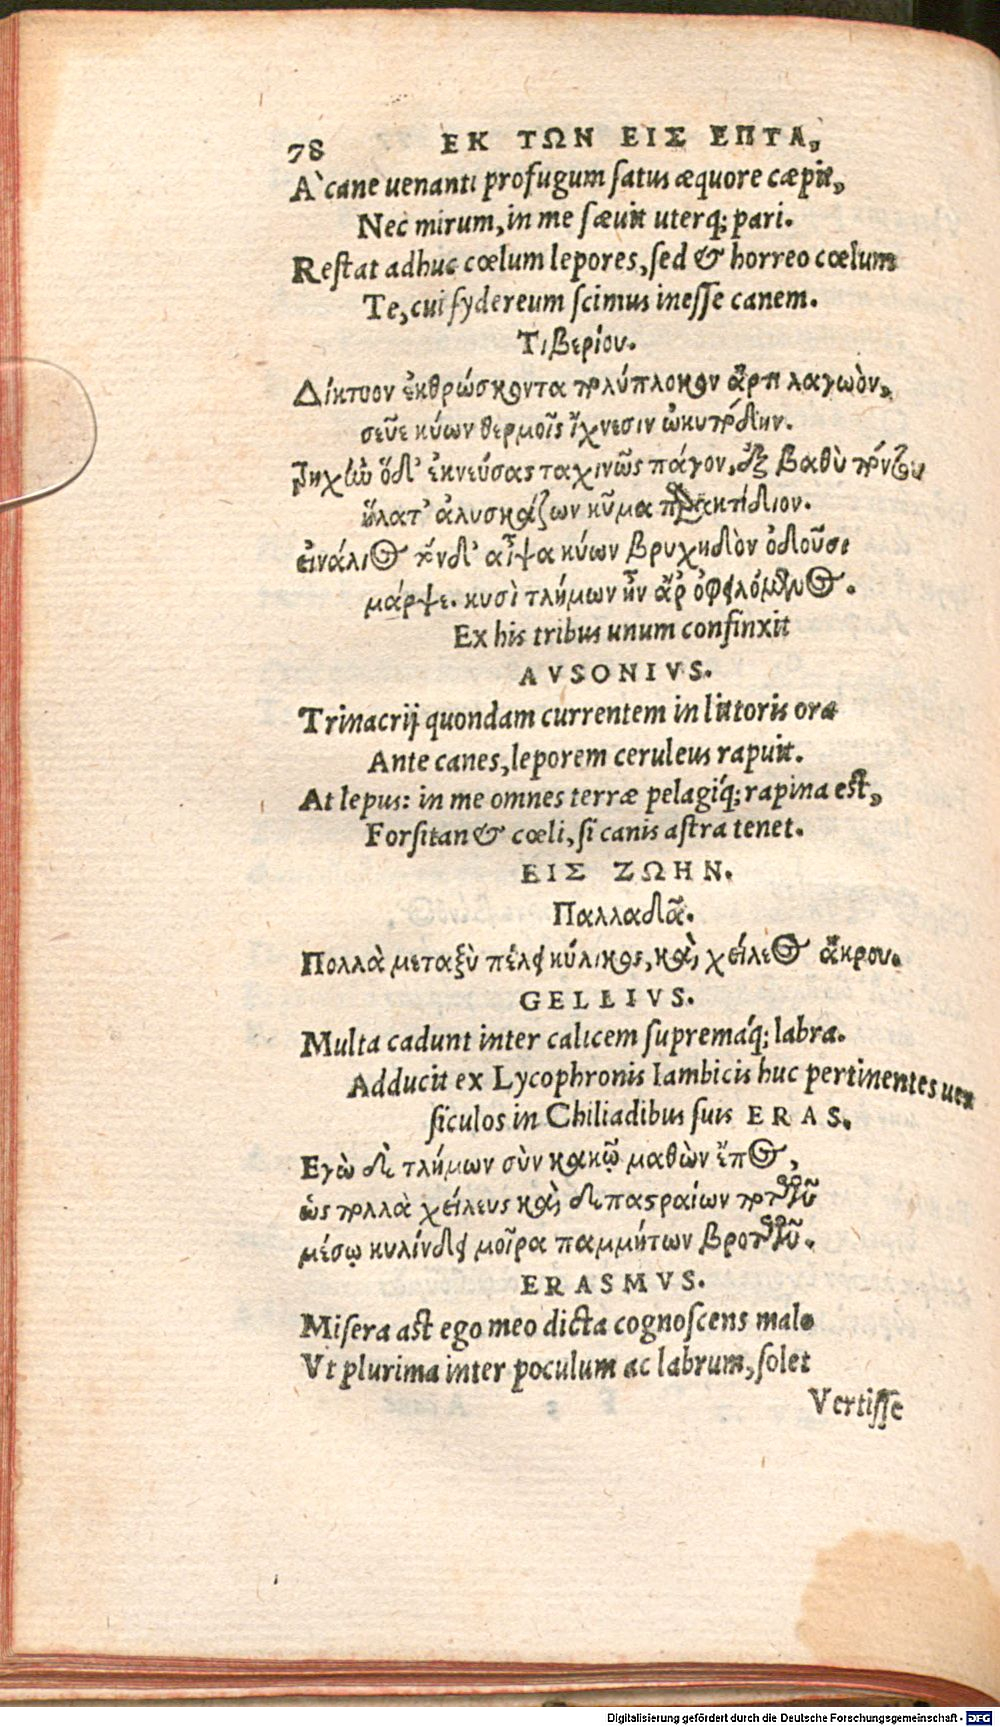 78 ΕΚ ΤΩΝ ΕΙΣ ΕΠΤΑ,
A` cane uenanti profugum satus æquore cæpit,
Nec mirum, in me sæuit uterq; pari.
Restat adhuc cœlum lepores, sed & horreo cœlum
Te, cui sydereum scimus inesse canem.
Τιβερίου.
Δίκτυον ἐκθρώσκοντα πολύπλοκον ἄρτι λαγωὸν,
σεῦε κύων θερμοῖς ἴχνεσιν ὠκυπόδην.
ὅδ' ἐκνεύσας ταχινῶς πάγον, ἐξ βαθὺ πόντου
ἥλατ' ἀλυσκάζων κῦμα
εἰνάλιος τόνδ' αἶψα κύων βρυχηδὸν ὀδοῦσι
μάρψε. κυσὶ τλήμων ἦν ἄρ ὀφειλόμενος.
Ex his tribus unum confinxit
AVSONIVS.
Trinacrij quondam currentem in littoris oræ
Ante canes, leporem ceruleus rapuit.
At lepus: in me omnes terræ pelagiq́; rapina est,
Forsitan & cœli, si canis astra tenet.
ΕΙΣ ΖΩΗΝ.
Παλλαδᾶ.
Πολλὰ μεταξὺ πέλει κύλικος, καὶ χείλεος ἄκρου.
GELLIVS.
Multa cadunt inter calicem supremáq; labra.
Adducit ex Lycophronis Iambicis huc pertinentes uer
siculos in Chiliadibus suis ERAS.
Εγὼ δὲ τλήμων σὺν κακῷ μαθὼν ἔπος,
ὡς πολλὰ χείλευς καὶ δεπαςραίων ποτῶν
μέσῳ κυλίνδει μοῖρα παμμήτων βροτῶν.
ERASMVS.
Misera ast ego meo dicta cognoscens malo
Vt plurima inter poculum ac labrum, solet
Vertisse
Digitalisierung gefördert durch die Deutsche Forschungsgemeinschaft - DFG